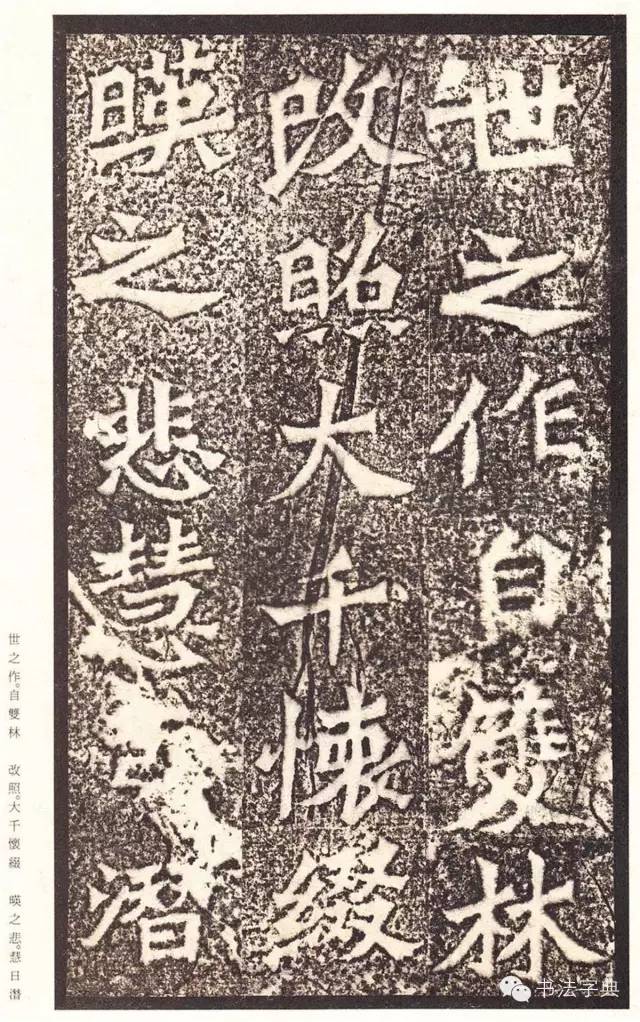 世之作自雙林
改照大千懷綴
暎之悲慧潛
世之作。自雙林 改照。大千懷綴 暎之悲。慧日潛
书法字典